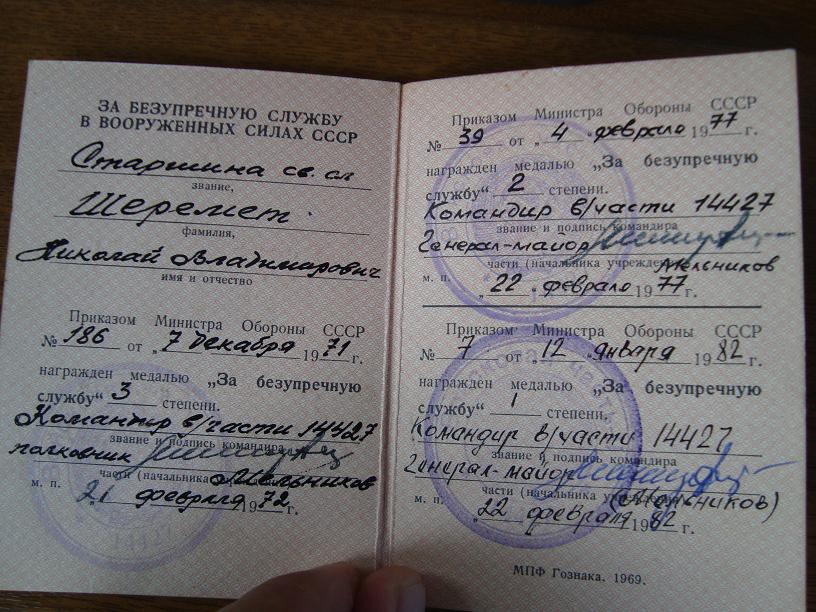 ЗА БЕЗУПРЕЧНУЮ СЛУЖБУ
В ВООРУЖЕННЫХ СИЛАХ СССР
Старшина св. сл
звание,
Шеремет
фамилия,
Николай Владимирович
имя и отчество
Приказом Министра Обороны СССР
№ 186 от „7 декабря 1971 г.
награжден медалью „За безупречную
службу“ 3 степени.
Командир в/части 14427
звание и подпись командира
полковник
части (начальника
Мельников
м. п. 21 февраля 1972 г.
14427
Приказом Министра Обороны СССР
№ 39 от „4 февраля 1977 г.
награжден медалью „За безупречную
службу“ 2 степени.
Командир в/части 14427
звание и подпись командира
Генерал-майор
части (начальника учрежден
Мельников
м. п. „22 февраля 1977 г.
Приказом Министра Обороны СССР
№ 7 от „12 января 1982 г.
награжден медалью „За безупречную
службу“ 1 степени,
Командир в/части 14427
звание и подпись командира
Генерал-майор
части (начальника
(Мельников)
м. п. „22 февраля 1982 г.
МПФ Гознака. 1969.